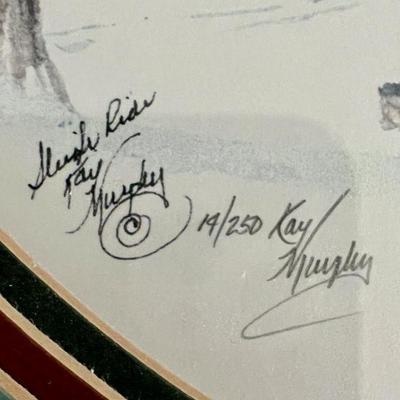 Sleigh Ride
Kay
Murphy
14/250 Kay
Murphy